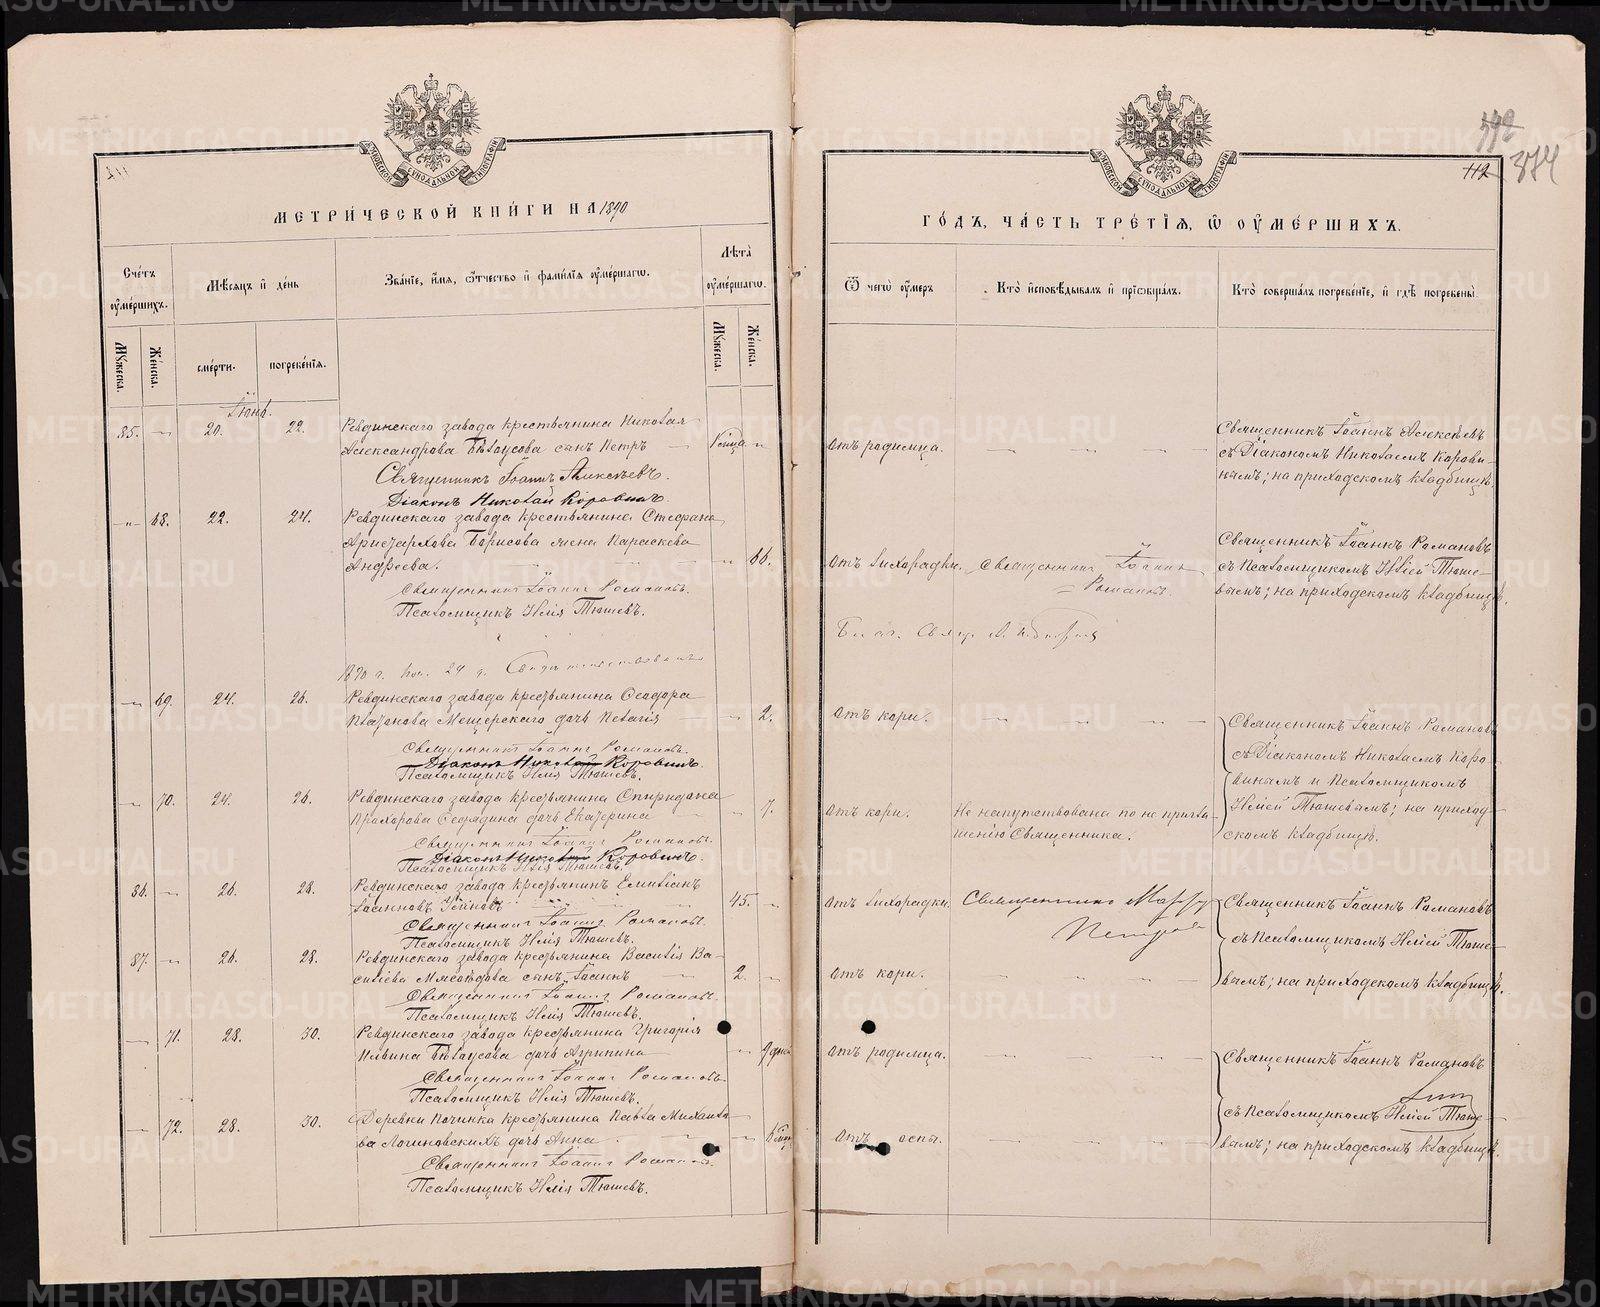 МЕТРИ́ЧЕСКОЙ КНИ́ГИ НА 1890
Сче́тъ оу҆ме́ршихъ.
Мѣ́сяцъ и҆ де́нь
Зва́нїе, и҆́мя, ѻ҆́тчество и҆ фами́лїя оу҆ме́ршагѡ.
Лѣта̀ оу҆ме́ршагѡ.
Мꙋ́жеска.
Же́нска.
сме́рти.
погребе́нїя.
Мꙋ́жеска.
Же́нска.
Іюнь.
85. — 20. 22. Ревдинскаго завода крестьянина Николая
Александрова Бѣлоусова сынъ Петръ
Священникъ Іоаннъ Алексѣевъ.
Діаконъ Николай Коровинъ.
— 68. 22. 24. Ревдинскаго завода крестьянина Стефана
Аристархова Борисова жена Параскева
Андреева. 66.
Священникъ Іоаннъ Романовъ.
Псаломщикъ Илія Тюшевъ.
1890 г. 24 д. Свидѣтельствовалъ
— 69. 24. 26. Ревдинскаго завода крестьянина Ѳеодора
Платонова Мещерскаго дочь Пелагія 2.
Священникъ Іоаннъ Романовъ.
Діаконъ Николай Коровинъ.
Псаломщикъ Илія Тюшевъ.
— 70. 24. 26. Ревдинскаго завода крестьянина Спиридона
Прохорова дочь Екатерина 7.
Священникъ Іоаннъ Романовъ.
Діаконъ Николай Коровинъ.
Псаломщикъ Илія Тюшевъ.
86. — 26. 28. Ревдинскаго завода крестьянинъ Емиліанъ
Іоанновъ 45.
Священникъ Іоаннъ Романовъ.
Псаломщикъ Илія Тюшевъ.
87. — 26. 28. Ревдинскаго завода крестьянина Василія Ва-
силіева Мясоѣдова сынъ Іоаннъ 2.
Священникъ Іоаннъ Романовъ.
Псаломщикъ Илія Тюшевъ.
— 71. 28. 30. Ревдинскаго завода крестьянина Григорія
Ильина Бѣлоусова дочь Агрипина
Священникъ Іоаннъ Романовъ.
Псаломщикъ Илія Тюшевъ.
— 72. 28. 30. Деревни Починка крестьянина Павла Михайло-
ва Логиновскихъ дочь Анна
Священникъ Іоаннъ Романовъ.
Псаломщикъ Илія Тюшевъ.
112
374
ГО́ДЪ, ЧА́СТЬ ТРЕ́ТЇЯ, Ѡ҆ ОУ҆МЕ́РШИХЪ.
Ѿ чегѡ̀ оу҆́меръ
Кто̀ и҆сповѣ́дывалъ и҆ прїѡбща́лъ.
Кто̀ соверша́лъ погребе́нїе, и҆ гдѣ̀ погребены̀.
Отъ родимца.
Священникъ Іоаннъ Алексѣевъ
съ Діакономъ Николаемъ Корови-
нымъ; на приходскомъ кладбищѣ.
Отъ лихорадки. Священникъ Іоаннъ
Романовъ.
Священникъ Іоаннъ Романовъ
съ Псаломщикомъ Иліей Тюше-
вымъ; на приходскомъ кладбищѣ.
Отъ кори.
Священникъ Іоаннъ Романовъ
съ Діакономъ Николаемъ Коро-
винымъ и Псаломщикомъ
Иліей Тюшевымъ; на приход-
скомъ кладбищѣ.
Отъ кори. Не напутствована по не пригла-
шенію Священника.
Отъ лихорадки. Священникъ
Петровъ
Священникъ Іоаннъ Романовъ
съ Псаломщикомъ Иліей Тюше-
вымъ; на приходскомъ кладбищѣ.
Отъ кори.
Отъ родимца.
Священникъ Іоаннъ Романовъ
съ Псаломщикомъ Иліей Тюше-
вымъ; на приходскомъ кладбищѣ.
Отъ оспы.
METRIKI.GASO-URAL.RU